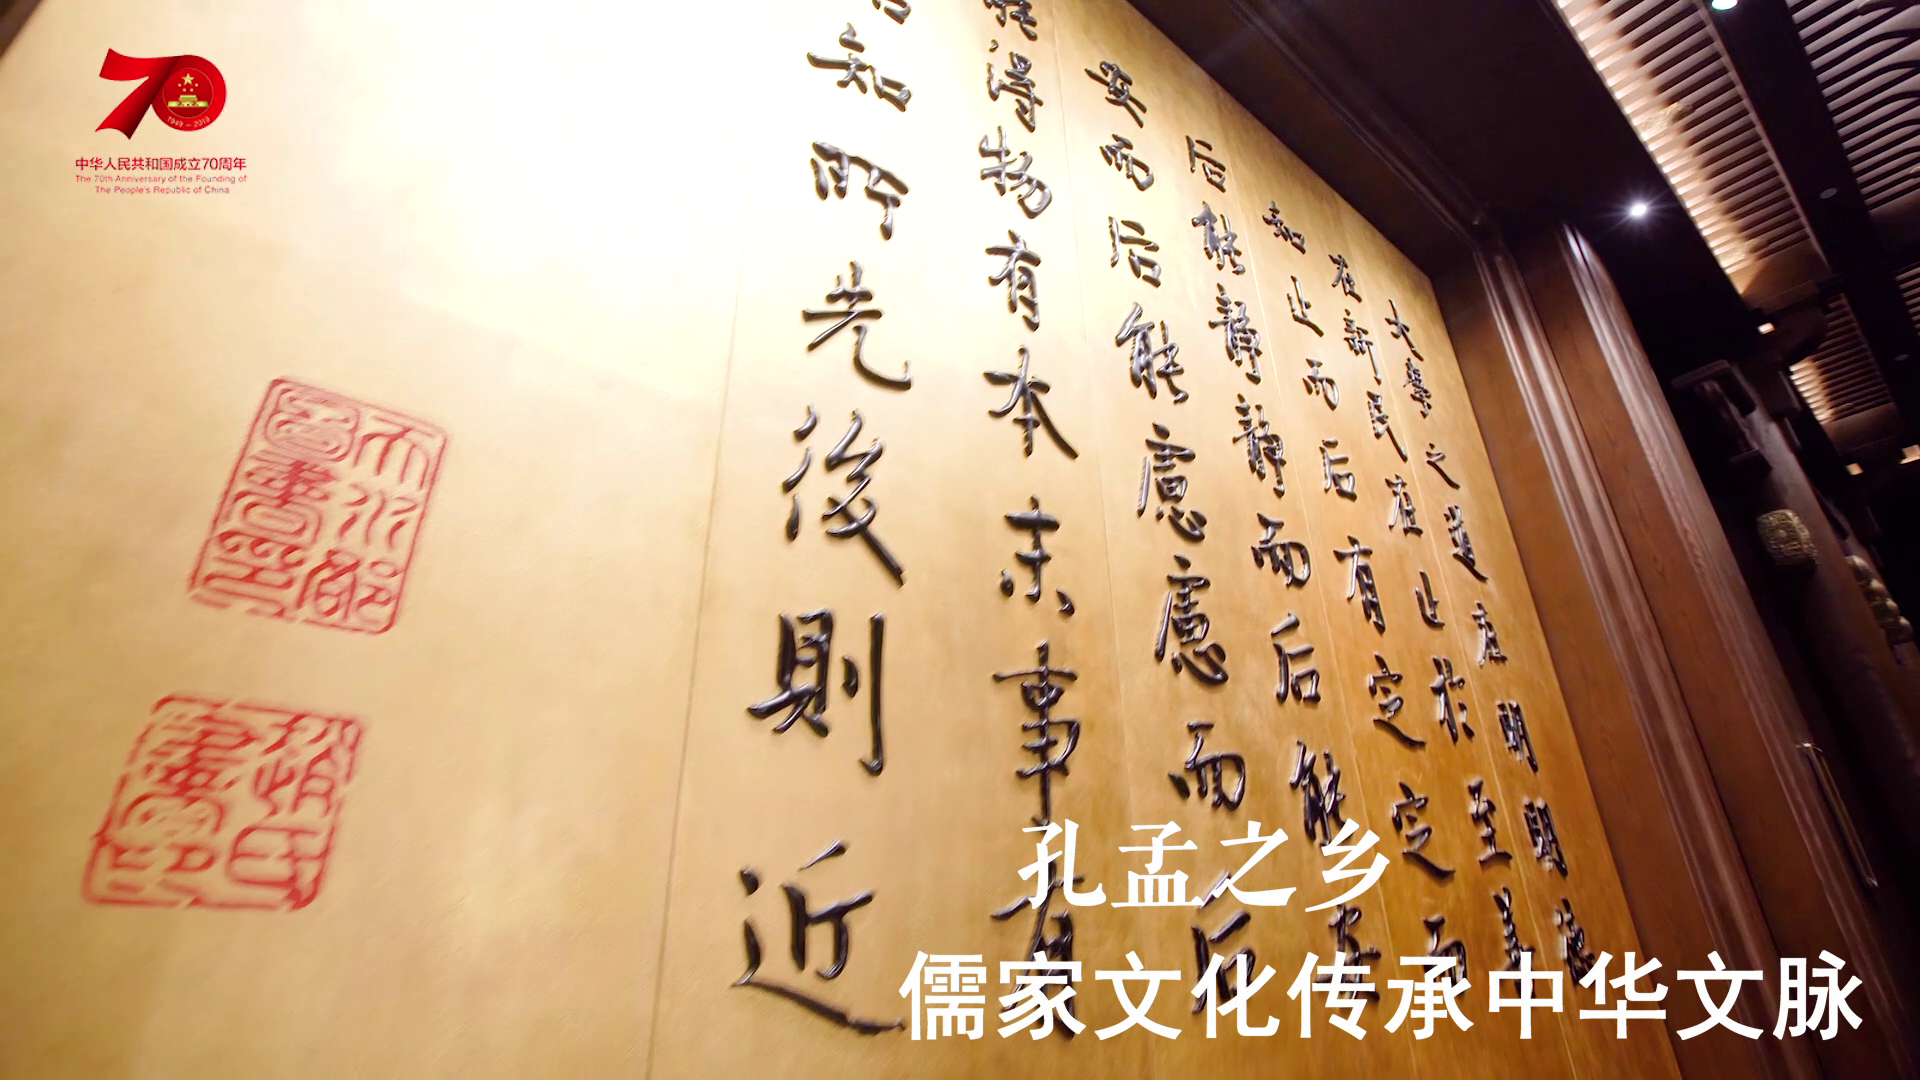 中华人民共和国成立70周年
The 70th Anniversary of the Founding of
The People's Republic of China
1949-2019
大學之道在明明德
在新民在止於至善
知止而后有定定而
后能靜靜而后能安
安而后能慮慮而后
能得物有本末事有
知所先後則近
天水郡
圖書印
趙氏
書印
孔孟之乡
儒家文化传承中华文脉